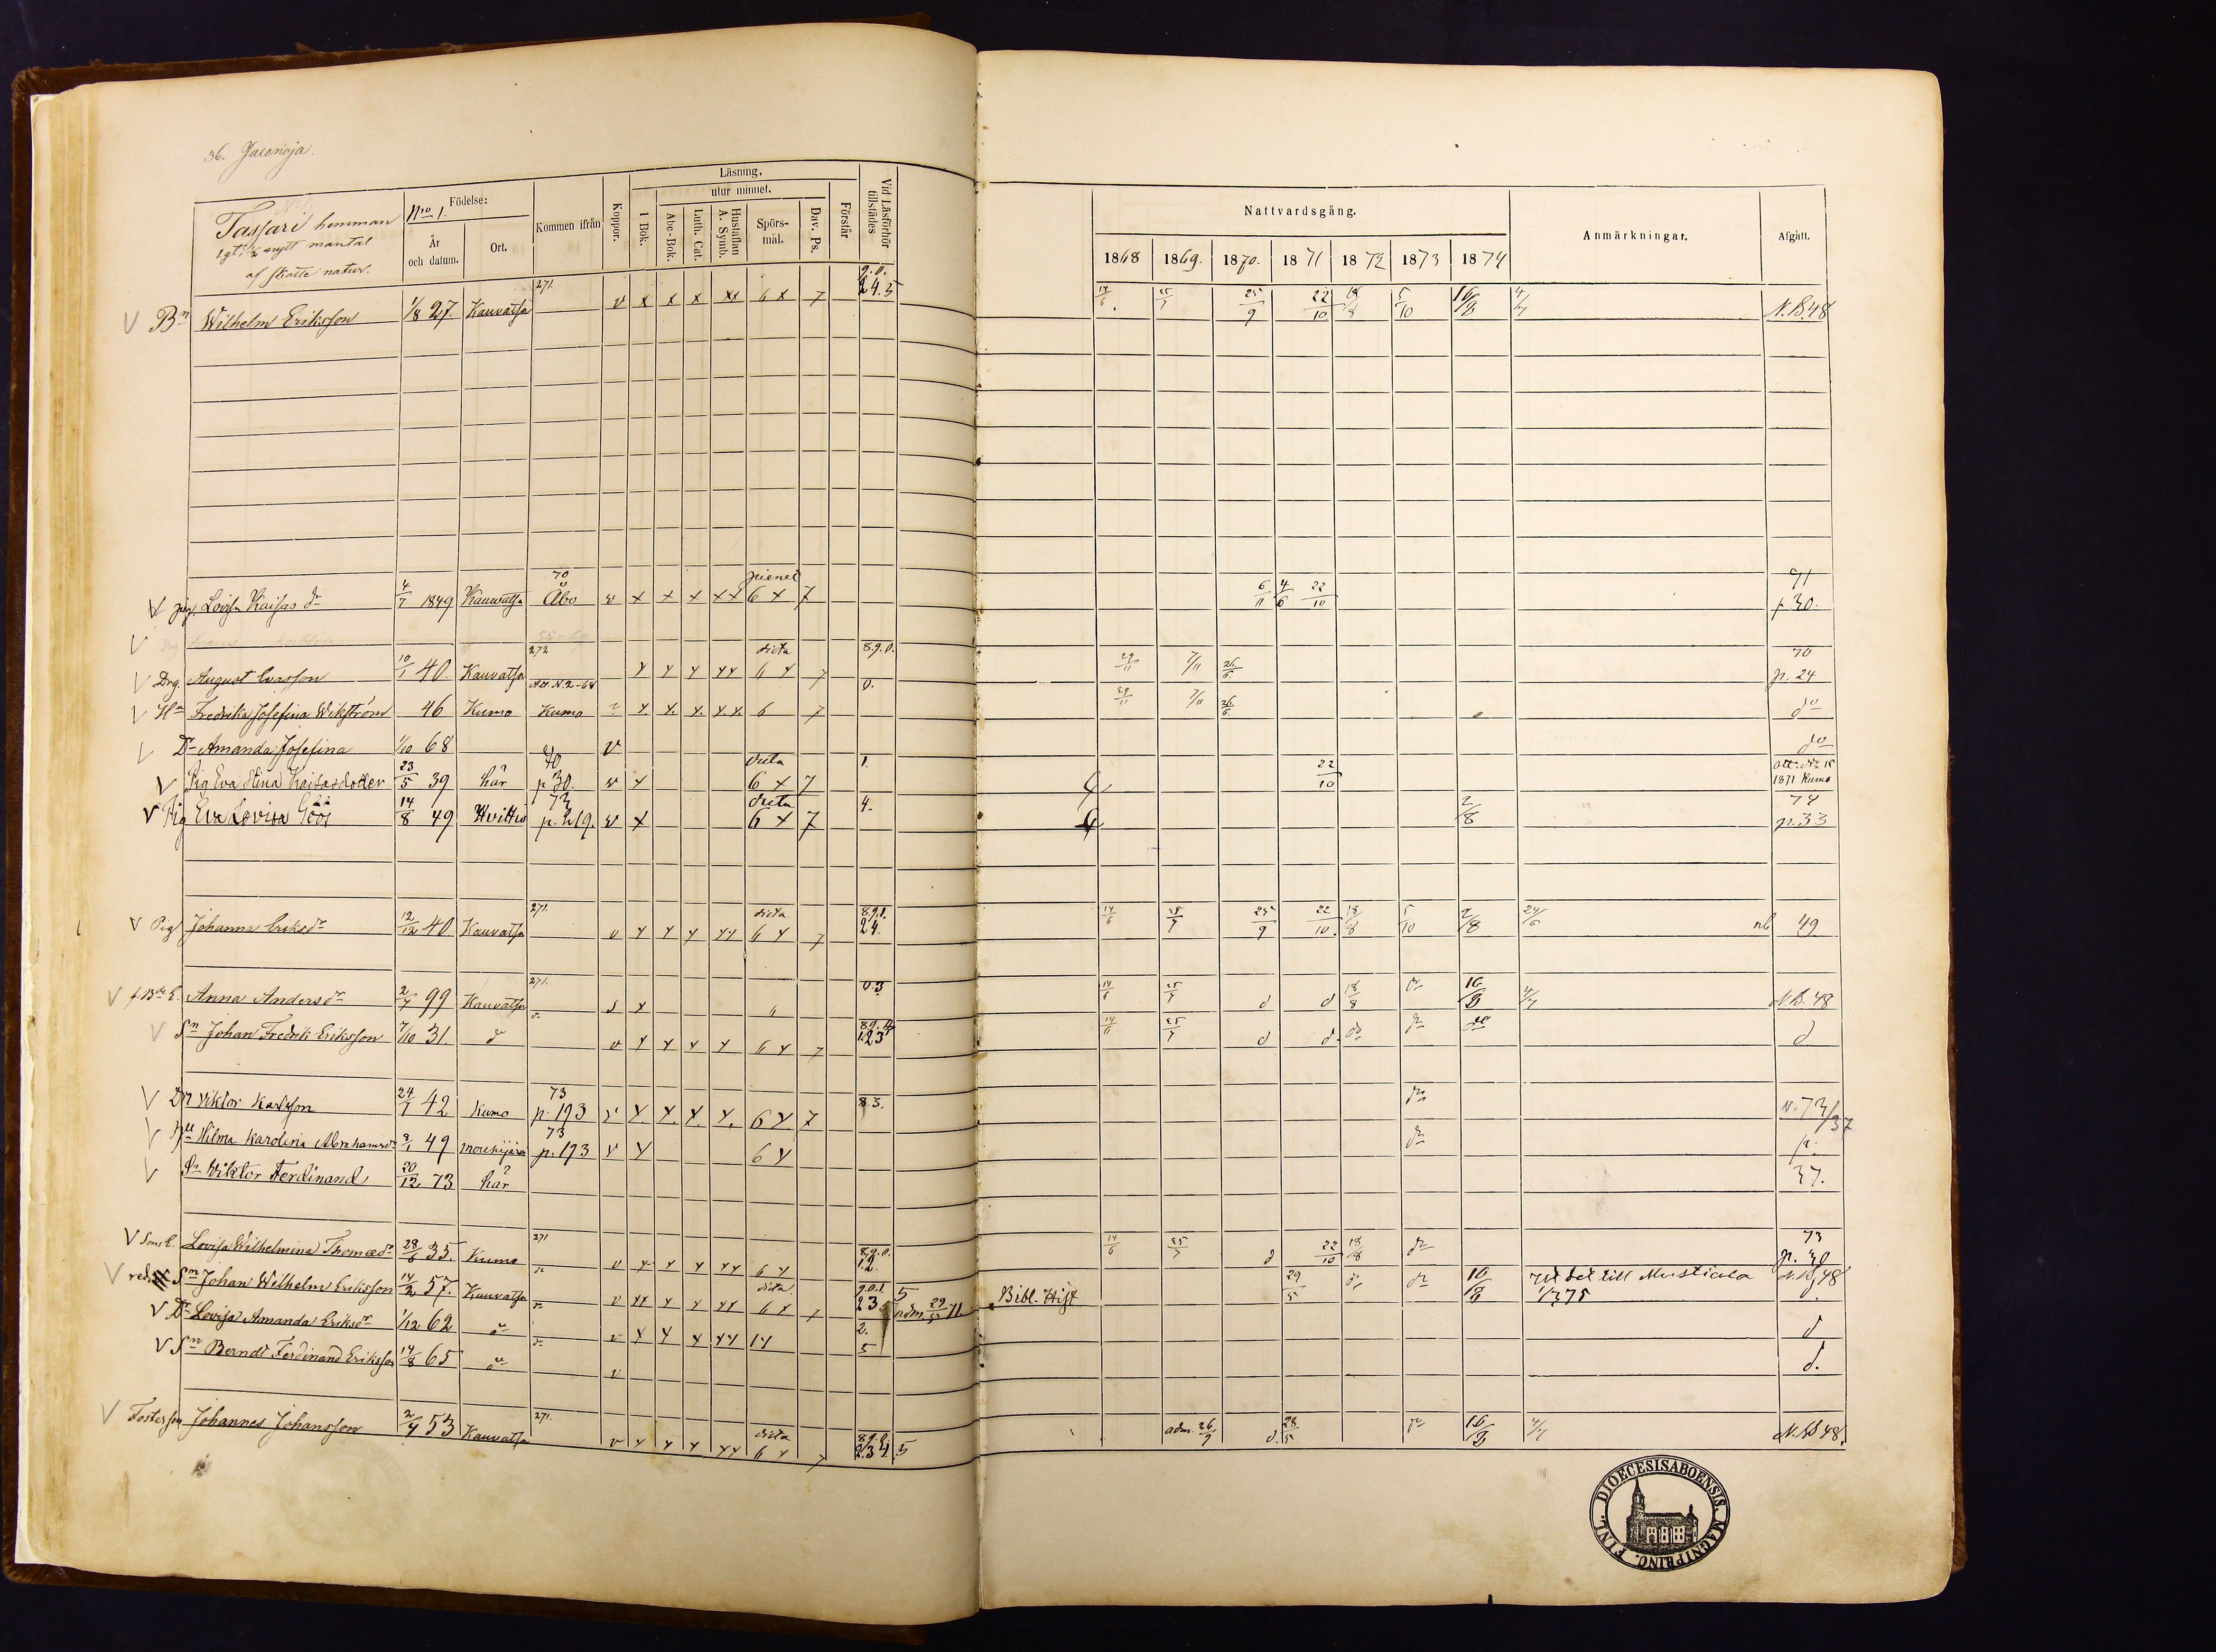 36. Jalonoja.
Tassari hemman
af skatte natur.
Nro 1.
Födelse:
År och datum.
Ort.
Kommen ifrån
Koppor.
Läsning.
utur minnet.
I Bok.
Abc-Bok.
Luth. Cat.
Hustaflan A. Symb.
Spörs-mål.
Dav. Ps.
Förstår
Vid Läsförhör tillstädes
Nattvardsgång.
1868 1869. 1870. 1871 1872 1873 1874
Anmärkningar.
Afgått.
V Bn Wilhelm Eriksson 1/8 27. Kauvatsa 271. v x x x xx 6 x 7 24.5 25/9 22/10 18/8 5/10 16/8 N.B. 48
V pig. Lovisa Kaisas dr 4/7 1849 Kauvatsa 70 Åbo v x x x xx 6 x 7 6/11 4/6 22/10 71 p 30.
V Drg. August Evasson 10/1 40. Kauvatsa 272 x x x xx 6 x 7 8.9.0. 29/11 7/11 26/6 70 p. 24
V Hu Fredrika Josefina Wikström 46 Kumo Kumo 6 7 0. 29/11 7/11 26/6 do
V Dr Amanda Josefina 1/10 68 v do
V Pig Eva Stina Kaisasdotter 23/5 39 här 70 p 30. v x 6 x 7 1. 22/10 att. No 15 1871 Kumo
V Pig Eva Lovisa Göös 14/8 49 Hvittis 73 p. 219. v x 6 x 7 4. 2/8 74 p. 33
V Pig Johanna Eriksdr 12/12 40 Kauvatsa 271. v x x x xx 6 x 7 8.9.1. 24. 14/6 25/7 25/9 22/10. 18/8 5/10 2/8 24/6 nb 49
V f.Bde E. Anna Andersdr 2/7 99 Kauvatsa 271. s x 6 0.3 14/6 25/7 d d 18/8 dr 16/8 4/7 N.B. 48
V Sn Johan Fredrik Eriksson 7/10 31 do v x x x x 6 x 7 89.4 123 14/6 25/7 d d. do dr do d
V Dr Viktor Karlsson 24/7 42 Kumo 73 p. 193 v x. x. x. x. 6 x 7 8.3. dr N. 73/37
V Hu Hilma Karolina Abrahamsdr 49 Mouhijärvi 73 p. 193 v x 6 x dr p.
V Sn Viktor Ferdinand 20/12 73 här 37.
V Sons E. Lovisa Wilhelmina Thomædr 28/6 35. Kumo 271 v x x x xx 6 x 8.9.0. 12. 14/6 25/7 d 22/10 18/8 dr 73 p. 30
V Sn Johan Wilhelm Eriksson 14/2 57. Kauvatsa v xx x x xx 6 x 7 9.0.1. 23 5 adm 29/5 71 Bibl. Hist 29/5 dr dr 16/8 till Mustiala N.B. 48
V Dr Lovisa Amanda Eriksdr 1/12 62 do v x x x xx 1 x 2. d
V Sn Berndt Ferdinand Eriksson 14/8 65 do v 5 d.
V Fosterson Johannes Johansson 2/4 53 Kauvatsa 271. v x x x xx 6 x 7 8.9.0. 2.3.4. 5 adm. 26/9 d. 28/5 dr 16/8 4/7 N.B 48.
DIOECESIS ABOENSIS. MAGNI PRINC. FINL.